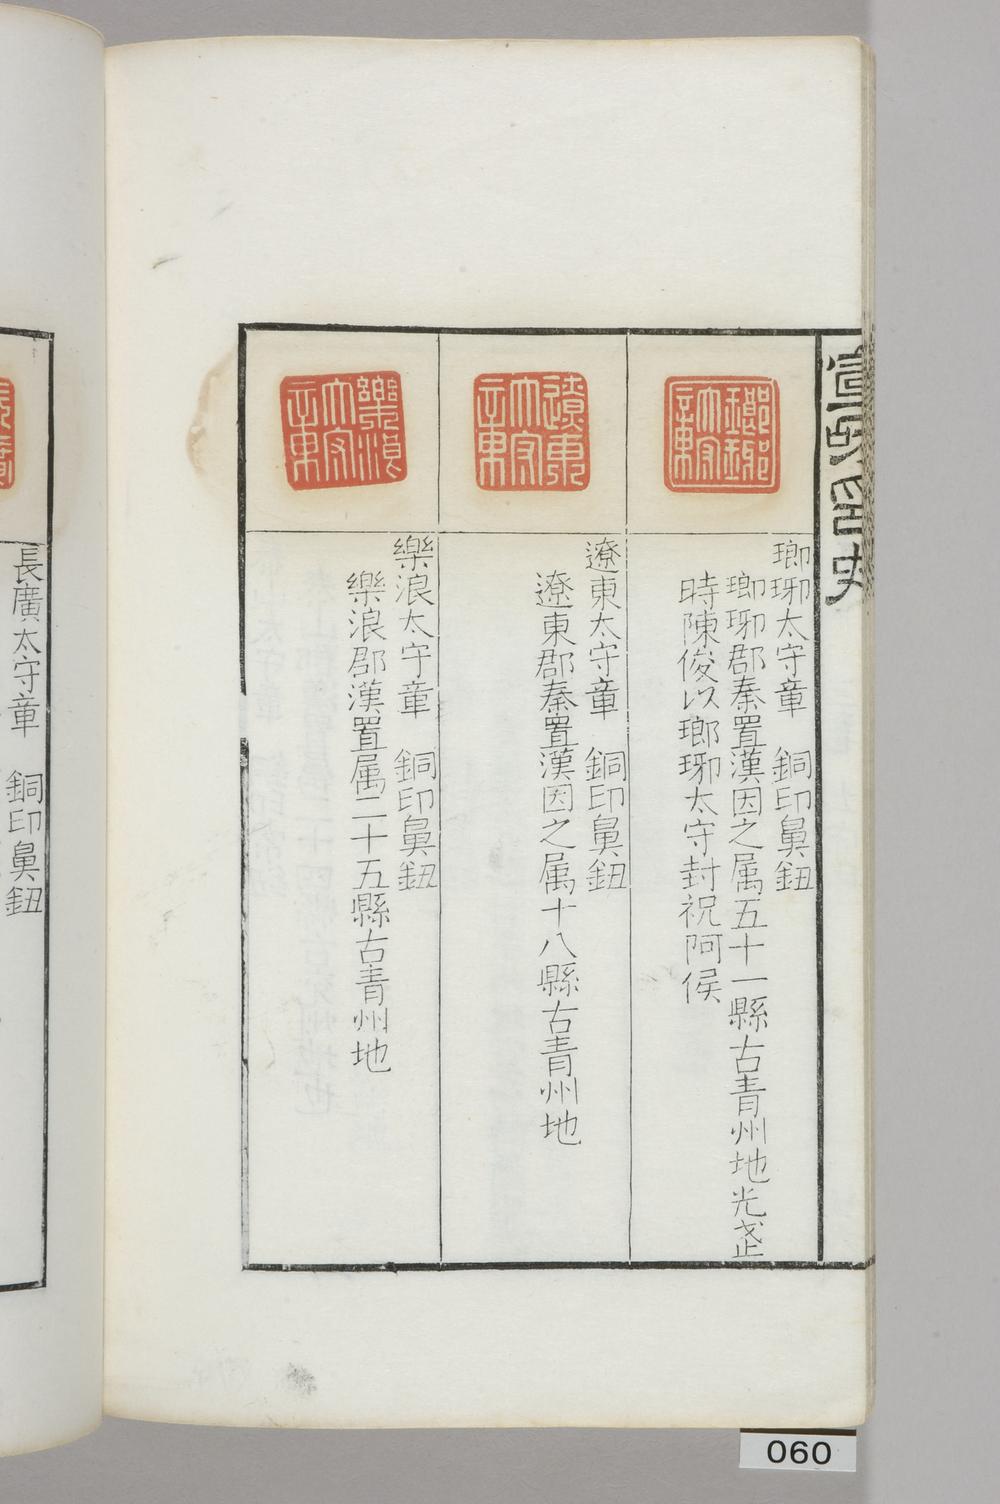 宣和印史
瑯琊太守章
瑯琊太守章 銅印鼻鈕
瑯琊郡秦置漢因之属五十一縣古青州地光武
時陳俊以瑯琊太守封祝阿侯
遼東太守章
遼東太守章 銅印鼻鈕
遼東郡秦置漢因之属十八縣古青州地
樂浪太守章
樂浪太守章 銅印鼻鈕
樂浪郡漢置属二十五縣古青州地
長廣太守章 銅印鼻鈕
060